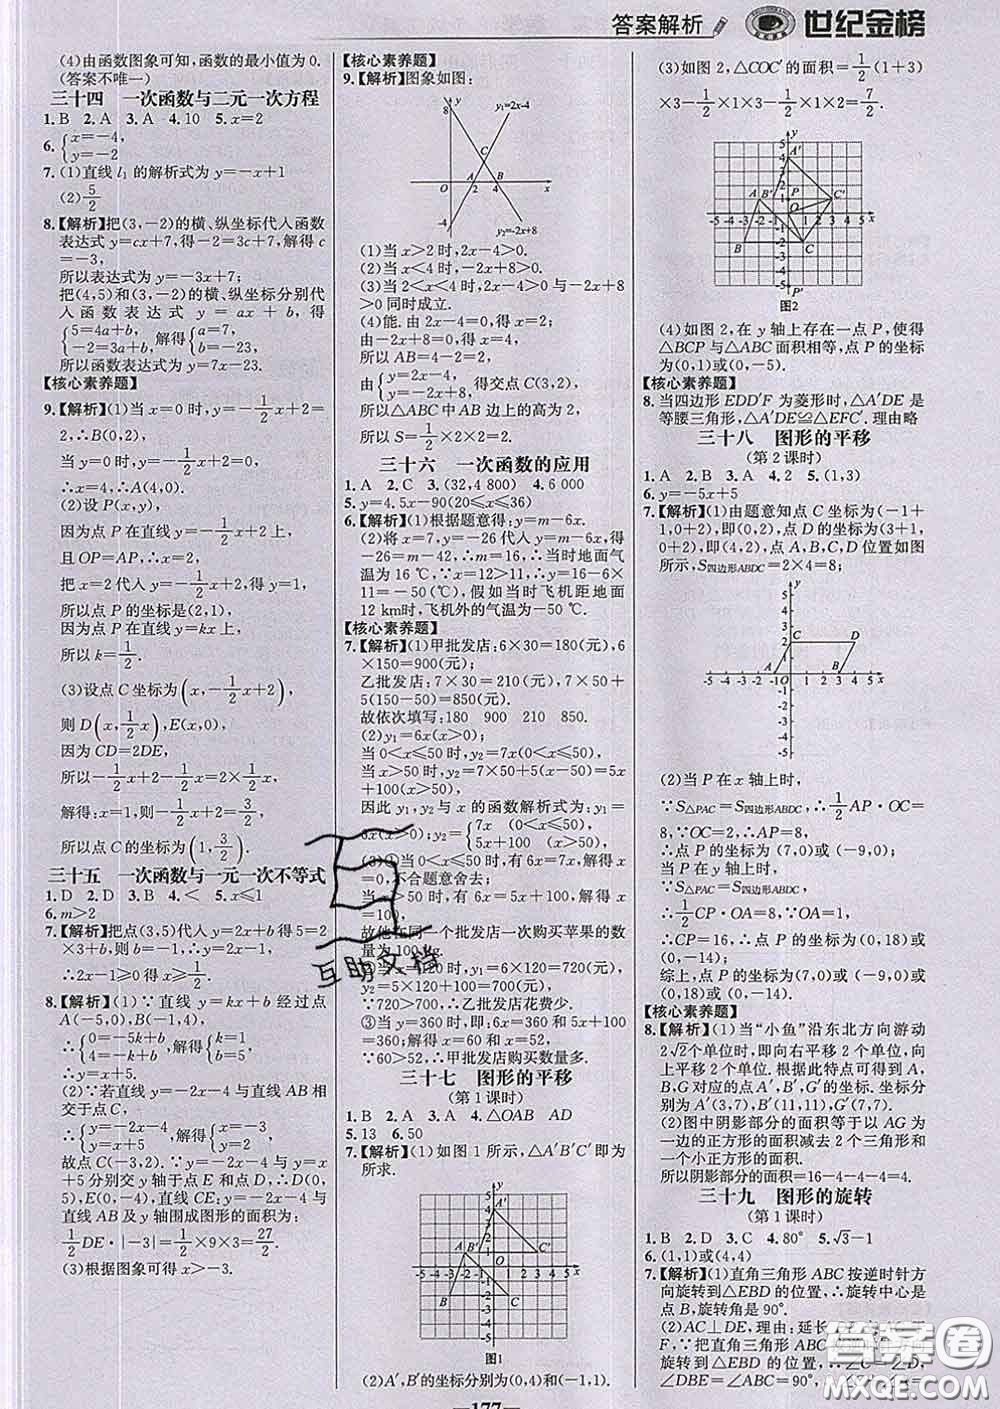 答案解析
世纪金榜
(4)由函数图象可知,函数的最小值为0.
(答案不唯一)
三十四 一次函数与二元一次方程
1.B 2.A 3.A 4.10 5.x=2
6.{x=-4, y=-2
7.(1)直线 l₁ 的解析式为 y=-x+1
(2)5/2
8.【解析】把(3,-2)的横、纵坐标代入函数
表达式 y=cx+7,得-2=3c+7,解得c
=-3,
所以表达式为 y=-3x+7;
把(4,5)和(3,-2)的横、纵坐标分别代
入函数表达式 y=ax+b,得
{5=4a+b, -2=3a+b, 解得{a=7, b=-23.
所以函数表达式为 y=7x-23.
【核心素养题】
9.【解析】(1)当 x=0 时,y=-1/2x+2=
2,∴B(0,2),
当 y=0 时,y=-1/2x+2=0,
∴x=4,∴A(4,0).
(2)设 P(x,y),
因为点 P 在直线 y=-1/2x+2 上,
且 OP=AP,∴x=2,
把 x=2 代入 y=-1/2x+2,得 y=1,
所以点 P 的坐标是(2,1),
因为点 P 在直线 y=kx 上,
所以 k=1/2.
(3)设点 C 坐标为(x,-1/2x+2),
则 D(x,1/2x),E(x,0),
因为 CD=2DE,
所以-1/2x+2-1/2x=2×1/2x,
解得:x=1,则-1/2x+2=3/2,
所以点 C 的坐标为(1,3/2).
三十五 一次函数与一元一次不等式
1.D 2.D 3.B 4.< 5.x≤1
6.m>2
7.【解析】把点(3,5)代入 y=2x+b 得 5=2
×3+b,则 b=-1,∴y=2x-1,
∴2x-1≥0 得 x≥1/2.
8.【解析】(1)∵直线 y=kx+b 经过点
A(-5,0),B(-1,4),
∴{0=-5k+b, 4=-k+b, 解得{k=1, b=5,
∴y=x+5.
(2)∵若直线 y=-2x-4 与直线 AB 相
交于点C,
∴{y=-2x-4, y=x+5, 解得{x=-3, y=2.
故点 C(-3,2).∵y=-2x-4 与 y=x
+5分别交 y轴于点 E 和点 D,∴D(0,
5),E(0,-4),直线 CE:y=-2x-4 与
直线 AB及 y轴围成图形的面积为:
1/2DE·|-3|=1/2×9×3=27/2.
(3)根据图象可得 x>-3.
【核心素养题】
9.【解析】图象如图:
y
8
y₁=2x-4
C
A
B
O
2
4
x
-4
y₂=-2x+8
(1)当 x>2 时,2x-4>0.
(2)当 x<4 时,-2x+8>0.
(3)当 2<x<4 时,2x-4>0 与-2x+8
>0 同时成立.
(4)能.由 2x-4=0,得 x=2;
由-2x+8=0,得 x=4,
所以 AB=4-2=2,
由{y=2x-4, y=-2x+8, 得交点 C(3,2),
所以△ABC 中 AB 边上的高为 2,
所以 S=1/2×2×2=2.
三十六 一次函数的应用
1.A 2.C 3.(32,4 800) 4.6 000
5.y=4.5x-90(20≤x≤36)
6.【解析】(1)根据题意得:y=m-6x.
(2)将 x=7,y=-26 代入 y=m-6x,得
-26=m-42,∴m=16,∴当时地面气
温为 16 ℃,∵x=12>11,∴y=16-6×
11=-50(℃),假如当时飞机距地面
12 km时,飞机外的气温为-50 ℃.
【核心素养题】
7.【解析】(1)甲批发店:6×30=180(元),6
×150=900(元);
乙批发店:7×30=210(元),7×50+
5(150-50)=850(元).
故依次填写:180 900 210 850.
(2)y₁=6x(x>0);
当 0<x≤50 时,y₂=7x(0<x≤50);
当 x>50 时,y₂=7×50+5(x-50)=5x
+100(x>50),
因此 y₁,y₂ 与 x 的函数解析式为:y₁=
6x(x>0);y₂={7x (0<x≤50), 5x+100 (x>50).
(3)①当 0<x≤50 时,有 6x=7x,解得 x
=0,不合题意舍去;
当 x>50 时,有 6x=5x+100,解得 x
=100,
故他在同一个批发店一次购买苹果的数
量为 100 kg.
②当 x=120 时,y₁=6×120=720,y₂
=5×120+100=700,
∵720>700,∴乙批发店花费少.
③当 y=360 时,即 6x=360 和 5x+100
=360;解得 x=60 和 x=52,
∵60>52,∴甲批发店购买数量多.
三十七 图形的平移
(第1课时)
1.B 2.A 3.A 4.△OAB AD
5.13 6.50
7.【解析】(1)如图1所示,△A′B′C′即为
所求.
图1
(2)A′,B′的坐标分别为(0,4)和(-1,1).
(3)如图2,△COC′的面积=1/2(1+3)
×3-1/2×1×3-1/2×1×2=7/2.
图2
(4)如图2,在 y轴上存在一点 P,使得
△BCP与△ABC 面积相等,点 P 的坐标
为(0,1)或(0,-5).
【核心素养题】
8.当四边形 EDD′F 为菱形时,△A′DE 是
等腰三角形,△A′DE≌△EFC′.理由略
三十八 图形的平移
(第2课时)
1.A 2.B 3.A 4.2 5.(1,3)
6.y=-5x+5
7.【解析】(1)由题意知点 C 坐标为(-1+
1,0+2),即(0,2),点 D 的坐标为(3+1,
0+2),即(4,2),点 A,B,C,D 位置如图
所示,S四边形ABDC=2×4=8;
(2)当 P 在 x 轴上时,
∵S△PAC=S四边形ABDC,∴1/2AP·OC=
8,∵OC=2,∴AP=8,
∴点 P 的坐标为(7,0)或(-9,0);
当 P 在 y 轴上时,
∵S△PAC=S四边形ABDC,
∴1/2CP·OA=8,∵OA=1,
∴CP=16,∴点 P 的坐标为(0,18)或
(0,-14);
综上,点 P 的坐标为(7,0)或(-9,0)或
(0,18)或(0,-14).
【核心素养题】
8.【解析】(1)当“小鱼”沿东北方向游动
2√2个单位时,即向右平移 2 个单位,向
上平移 2 个单位,根据此特点可得到 A,
B,G 对应的点 A′,B′,G′的坐标.坐标分
别为 A′(3,7),B′(11,7),G′(7,7).
(2)图中阴影部分的面积等于以 AG 为
一边的正方形的面积减去 2 个三角形和
一个小正方形的面积.
所以阴影部分的面积=16-4-4-4=4.
三十九 图形的旋转
(第1课时)
1.B 2.D 3.C 4.80° 5.√3-1
6.(1,1)或(4,4)
7.【解析】(1)直角三角形 ABC 按逆时针方
向旋转到△EBD 的位置,旋转中心是
点 B,旋转角是 90°.
(2)AC⊥DE,理由:延长
F.∵把直角三角形 ABC
旋转到△EBD 的位置,∴∠C=∠D.
∵∠ABC=∠DBE=90°,∴∠A+∠C=
—177—
互助文档
答案卷
MXQE.COM